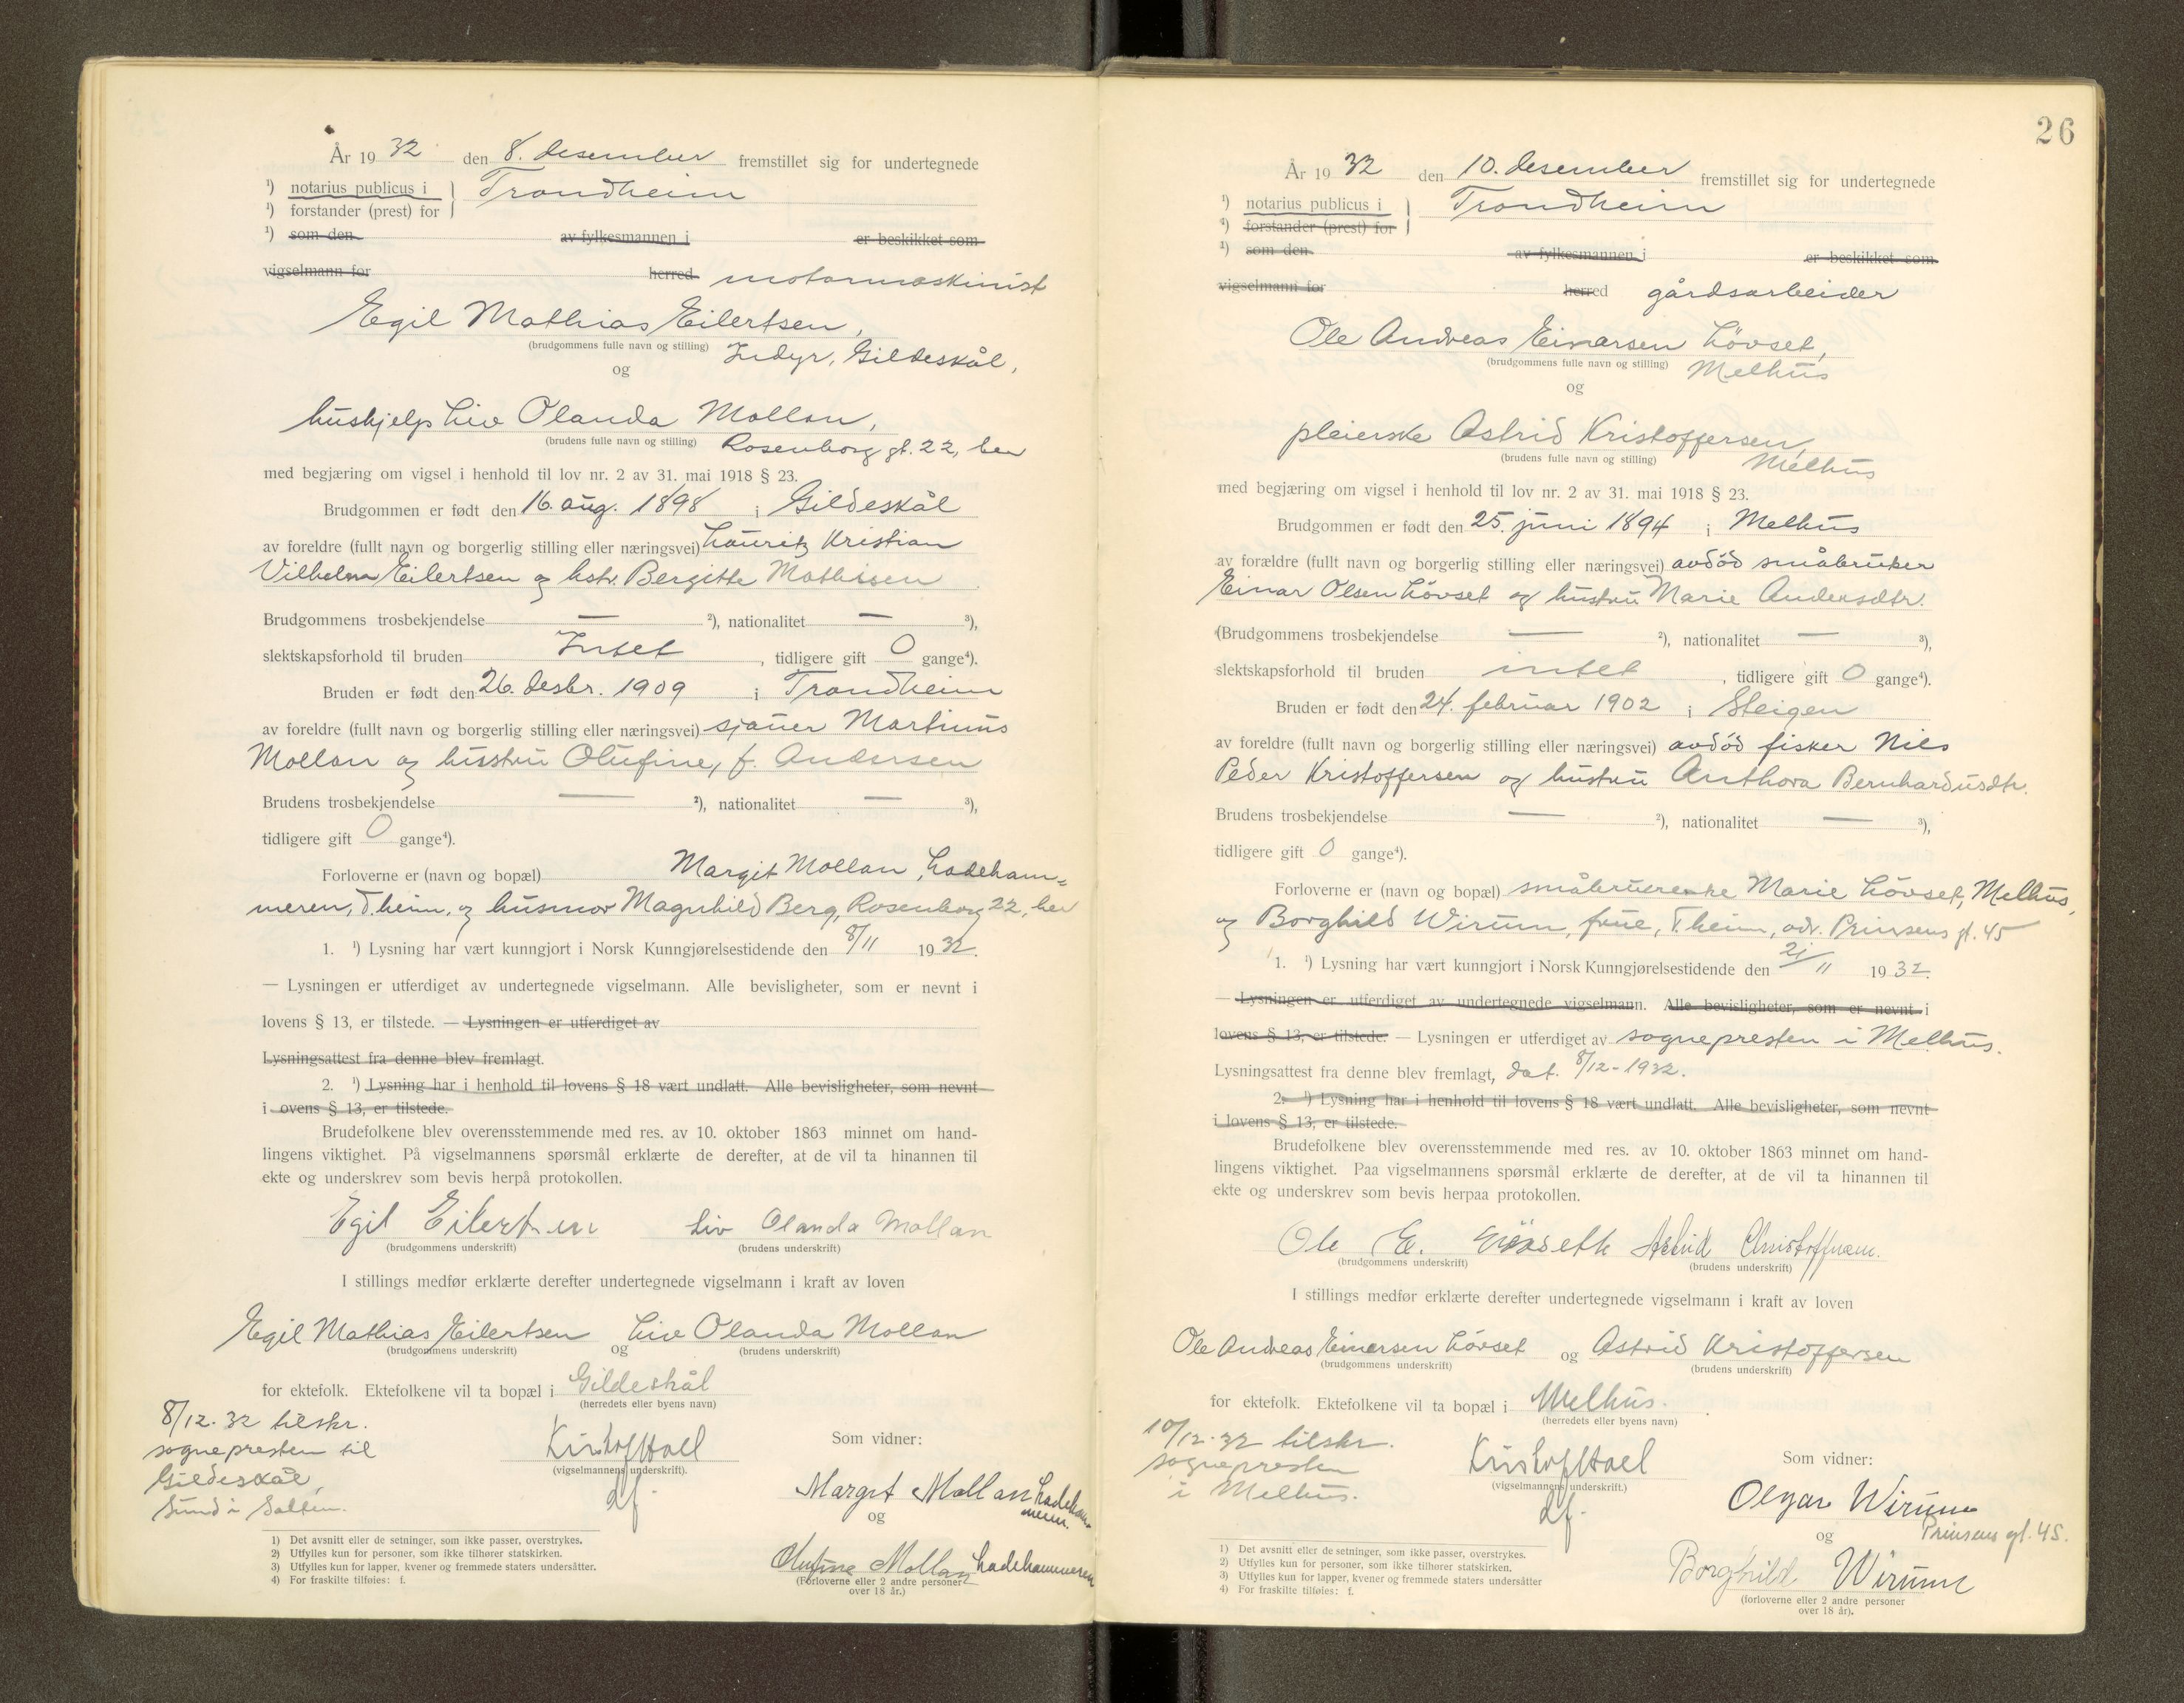 År 1932 den 8. desember fremstillet sig for undertegnede
¹) notarius publicus i } Trondheim
¹) forstander (prest) for
¹) som den av fylkesmannen i er beskikket som
vigselmann for herred motormaskinist
Egil Mathias Eilertsen,
(brudgommens fulle navn og stilling) Indyr, Gildeskål,
og
hushjelp Liv Olanda Mollan,
(brudens fulle navn og stilling) Rosenborg gt. 22, her
med begjæring om vigsel i henhold til lov nr. 2 av 31. mai 1918 § 23.
Brudgommen er født den 16. aug. 1898 i Gildeskål
av foreldre (fullt navn og borgerlig stilling eller næringsvei) Lauritz Kristian
Vilhelm Eilertsen og hstr. Bergitte Mathisen
Brudgommens trosbekjendelse — ²), nationalitet — ³),
slektskapsforhold til bruden Intet, tidligere gift 0 gange⁴).
Bruden er født den 26. desbr. 1909 i Trondheim
av foreldre (fullt navn og borgerlig stilling eller næringsvei) sjauer Martinus
Mollan og hustru Olufine, f. Andersen
Brudens trosbekjendelse — ²), nationalitet — ³),
tidligere gift 0 gange⁴).
Forloverne er (navn og bopæl) Margit Mollan, Ladeham-
meren, T.heim, og husmor Magnhild Berg, Rosenborg 22, her
1. ¹) Lysning har vært kunngjort i Norsk Kunngjørelsestidende den 8/11 1932.
— Lysningen er utferdiget av undertegnede vigselmann. Alle bevisligheter, som er nevnt i
lovens § 13, er tilstede. — Lysningen er utferdiget av
Lysningsattest fra denne blev fremlagt.
2. ¹) Lysning har i henhold til lovens § 18 vært undlatt. Alle bevisligheter, som nevnt
i ovens § 13, er tilstede.
Brudefolkene blev overensstemmende med res. av 10. oktober 1863 minnet om hand-
lingens viktighet. På vigselmannens spørsmål erklærte de derefter, at de vil ta hinannen til
ekte og underskrev som bevis herpå protokollen.
Egil Eilertsen Liv Olanda Mollan
(brudgommens underskrift) (brudens underskrift)
I stillings medfør erklærte derefter undertegnede vigselmann i kraft av loven
Egil Mathias Eilertsen og Liv Olanda Mollan
(brudgommens underskrift) (brudens underskrift)
for ektefolk. Ektefolkene vil ta bopæl i Gildeskål
(herredets eller byens navn)
8/12-32 tilskr.
sognepresten til
Gildeskål,
Sund i Salten.
Kristof Hoel
(vigselmannens underskrift).
df.
Som vidner:
Margit Mollan Ladeham-
meren.
og
Olufine Mollan Ladehammeren
(Forloverne eller 2 andre personer
over 18 år.)
1) Det avsnitt eller de setninger, som ikke passer, overstrykes.
2) Utfylles kun for personer, som ikke tilhører statskirken.
3) Utfylles kun for lapper, kvener og fremmede staters undersåtter.
4) For fraskilte tilføies: f.
26
År 1932 den 10. desember fremstillet sig for undertegnede
¹) notarius publicus i } Trondheim
¹) forstander (prest) for
¹) som den av fylkesmannen i er beskikket som
vigselmann for herred gårdsarbeider
Ole Andreas Einarsen Lövset,
(brudgommens fulle navn og stilling) Melhus
og
pleierske Astrid Kristoffersen,
(brudens fulle navn og stilling) Melhus
med begjæring om vigsel i henhold til lov nr. 2 av 31. mai 1918 § 23.
Brudgommen er født den 25. juni 1894 i Melhus
av forældre (fullt navn og borgerlig stilling eller næringsvei) avdöd småbruker
Einar Olsen Lövset og hustru Marie Andersdtr.
(Brudgommens trosbekjendelse — ²), nationalitet — ³),
slektskapsforhold til bruden intet, tidligere gift 0 gange⁴).
Bruden er født den 24. februar 1902 i Steigen
av foreldre (fullt navn og borgerlig stilling eller næringsvei) avdöd fisker Nils
Peder Kristoffersen og hustru Anthora Bernhardusdtr.
Brudens trosbekjendelse — ²), nationalitet — ³),
tidligere gift 0 gange⁴).
Forloverne er (navn og bopæl) Marie Lövset, Melhus,
og Borghild Wirum, frue, T.heim, adr. Prinsens gt. 45
1. ¹) Lysning har vært kunngjort i Norsk Kunngjørelsestidende den 21/11 1932.
— Lysningen er utferdiget av undertegnede vigselmann. Alle bevisligheter, som er nevnt i
lovens § 13, er tilstede. — Lysningen er utferdiget av sognepresten i Melhus.
Lysningsattest fra denne blev fremlagt, dat. 8/12-1932.
2. ¹) Lysning har i henhold til lovens § 18 vært undlatt. Alle bevisligheter, som nevnt
i lovens § 13, er tilstede.
Brudefolkene blev overensstemmende med res. av 10. oktober 1863 minnet om hand-
lingens viktighet. Paa vigselmannens spørsmål erklærte de derefter, at de vil ta hinannen til
ekte og underskrev som bevis herpaa protokollen.
Ole E. Astrid Christoffersen.
(brudgommens underskrift) (brudens underskrift)
I stillings medfør erklærte derefter undertegnede vigselmann i kraft av loven
Ole Andreas Einarsen Lövset og Astrid Kristoffersen
(brudgommens underskrift) (brudens underskrift)
for ektefolk. Ektefolkene vil ta bopæl i Melhus.
(herredets eller byens navn)
10/12-32 tilskr.
sognepresten
i Melhus.
Kristof Hoel
(vigselmannens underskrift.)
df.
Som vidner:
Olgar Wirum
og Prinsens gt. 45.
Borghild Wirum
(forloverne eller 2 andre personer
over 18 år).
1) Det avsnitt eller de setninger, som ikke passer, overstrykes.
2) Utfylles kun for personer, som ikke tilhører statskirken.
3) Utfylles kun for lapper, kvener og fremmede staters undersåtter
4) For fraskilte tilføies: f.